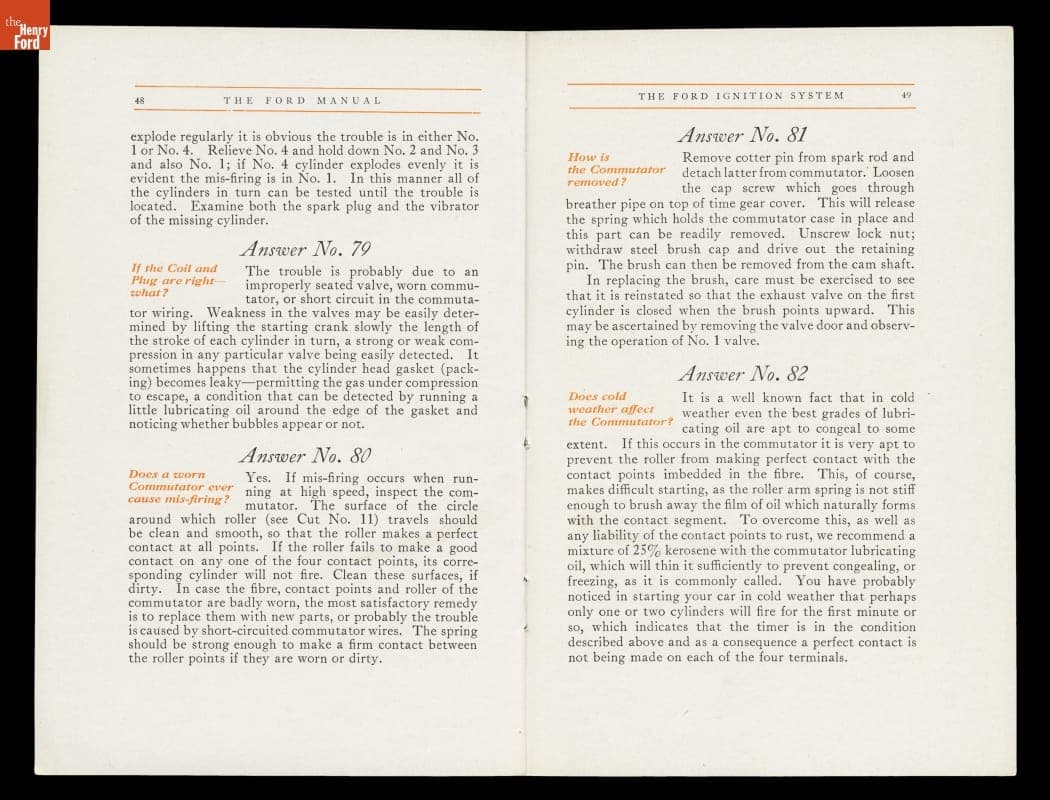 the
Henry
Ford
48 THE FORD MANUAL
explode regularly it is obvious the trouble is in either No.
1 or No. 4. Relieve No. 4 and hold down No. 2 and No. 3
and also No. 1; if No. 4 cylinder explodes evenly it is
evident the mis-firing is in No. 1. In this manner all of
the cylinders in turn can be tested until the trouble is
located. Examine both the spark plug and the vibrator
of the missing cylinder.
Answer No. 79
If the Coil and
Plug are right—
what?
The trouble is probably due to an
improperly seated valve, worn commu-
tator, or short circuit in the commuta-
tor wiring. Weakness in the valves may be easily deter-
mined by lifting the starting crank slowly the length of
the stroke of each cylinder in turn, a strong or weak com-
pression in any particular valve being easily detected. It
sometimes happens that the cylinder head gasket (pack-
ing) becomes leaky—permitting the gas under compression
to escape, a condition that can be detected by running a
little lubricating oil around the edge of the gasket and
noticing whether bubbles appear or not.
Answer No. 80
Does a worn
Commutator ever
cause mis-firing?
Yes. If mis-firing occurs when run-
ning at high speed, inspect the com-
mutator. The surface of the circle
around which roller (see Cut No. 11) travels should
be clean and smooth, so that the roller makes a perfect
contact at all points. If the roller fails to make a good
contact on any one of the four contact points, its corre-
sponding cylinder will not fire. Clean these surfaces, if
dirty. In case the fibre, contact points and roller of the
commutator are badly worn, the most satisfactory remedy
is to replace them with new parts, or probably the trouble
is caused by short-circuited commutator wires. The spring
should be strong enough to make a firm contact between
the roller points if they are worn or dirty.
THE FORD IGNITION SYSTEM 49
Answer No. 81
How is
the Commutator
removed?
Remove cotter pin from spark rod and
detach latter from commutator. Loosen
the cap screw which goes through
breather pipe on top of time gear cover. This will release
the spring which holds the commutator case in place and
this part can be readily removed. Unscrew lock nut;
withdraw steel brush cap and drive out the retaining
pin. The brush can then be removed from the cam shaft.
In replacing the brush, care must be exercised to see
that it is reinstated so that the exhaust valve on the first
cylinder is closed when the brush points upward. This
may be ascertained by removing the valve door and observ-
ing the operation of No. 1 valve.
Answer No. 82
Does cold
weather affect
the Commutator?
It is a well known fact that in cold
weather even the best grades of lubri-
cating oil are apt to congeal to some
extent. If this occurs in the commutator it is very apt to
prevent the roller from making perfect contact with the
contact points imbedded in the fibre. This, of course,
makes difficult starting, as the roller arm spring is not stiff
enough to brush away the film of oil which naturally forms
with the contact segment. To overcome this, as well as
any liability of the contact points to rust, we recommend a
mixture of 25% kerosene with the commutator lubricating
oil, which will thin it sufficiently to prevent congealing, or
freezing, as it is commonly called. You have probably
noticed in starting your car in cold weather that perhaps
only one or two cylinders will fire for the first minute or
so, which indicates that the timer is in the condition
described above and as a consequence a perfect contact is
not being made on each of the four terminals.